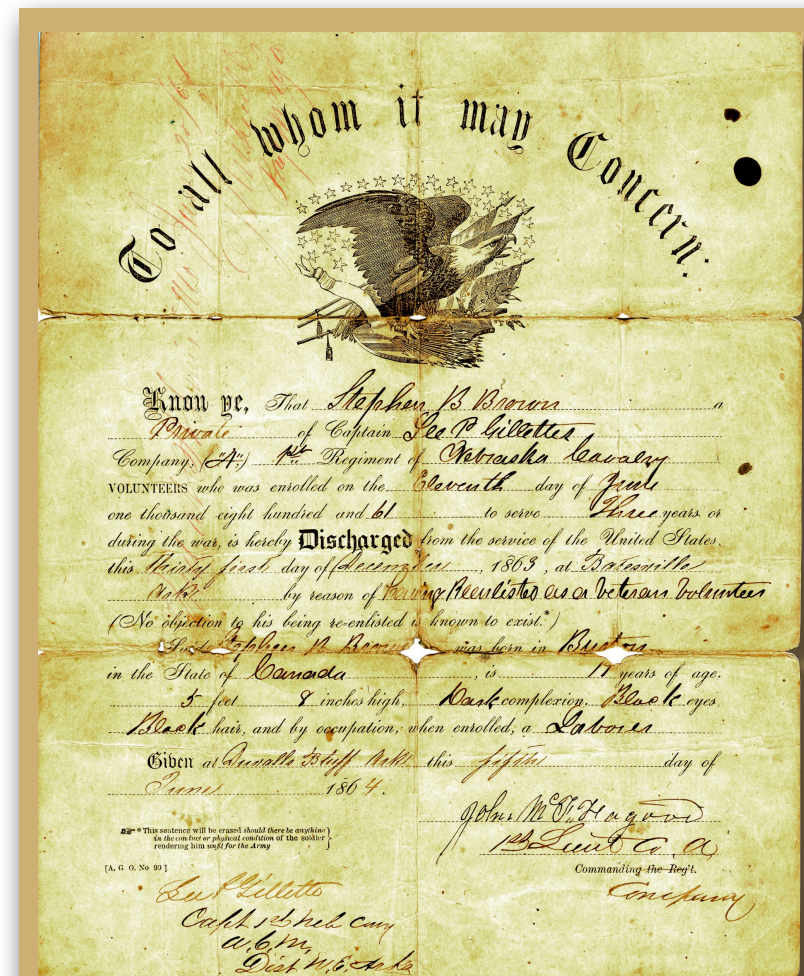 To all whom it may Concern:
Know ye, That Stephen B Brown a
Private of Captain Lee P Gillettes
Company, ("A") 1st Regiment of Nebraska Cavalry
VOLUNTEERS who was enrolled on the Eleventh day of June
one thousand eight hundred and 61 to serve Three years or
during the war, is hereby Discharged from the service of the United States,
this thirty first day of December, 1863, at Batesville
Arks by reason of having Reenlisted as a Veteran Volunteer
(No objection to his being re-enlisted is known to exist.*)
Said Stephen B Brown was born in
in the State of Canada, is years of age,
5 feet 8 inches high, Dark complexion, Black eyes,
Black hair, and by occupation, when enrolled, a Laborer
Given at Duvalls Bluff Arks this fifth day of
June 1864.
John McF. Hagood
1st Lieut Co. A
Commanding the Reg't.
Company
* This sentence will be erased should there be anything
in the conduct or physical condition of the soldier
rendering him unfit for the Army
[A. G O. No 99]
Lee P Gillette
Capt 1st Neb Cavy
A.C.M.
Dist N.E. Arks